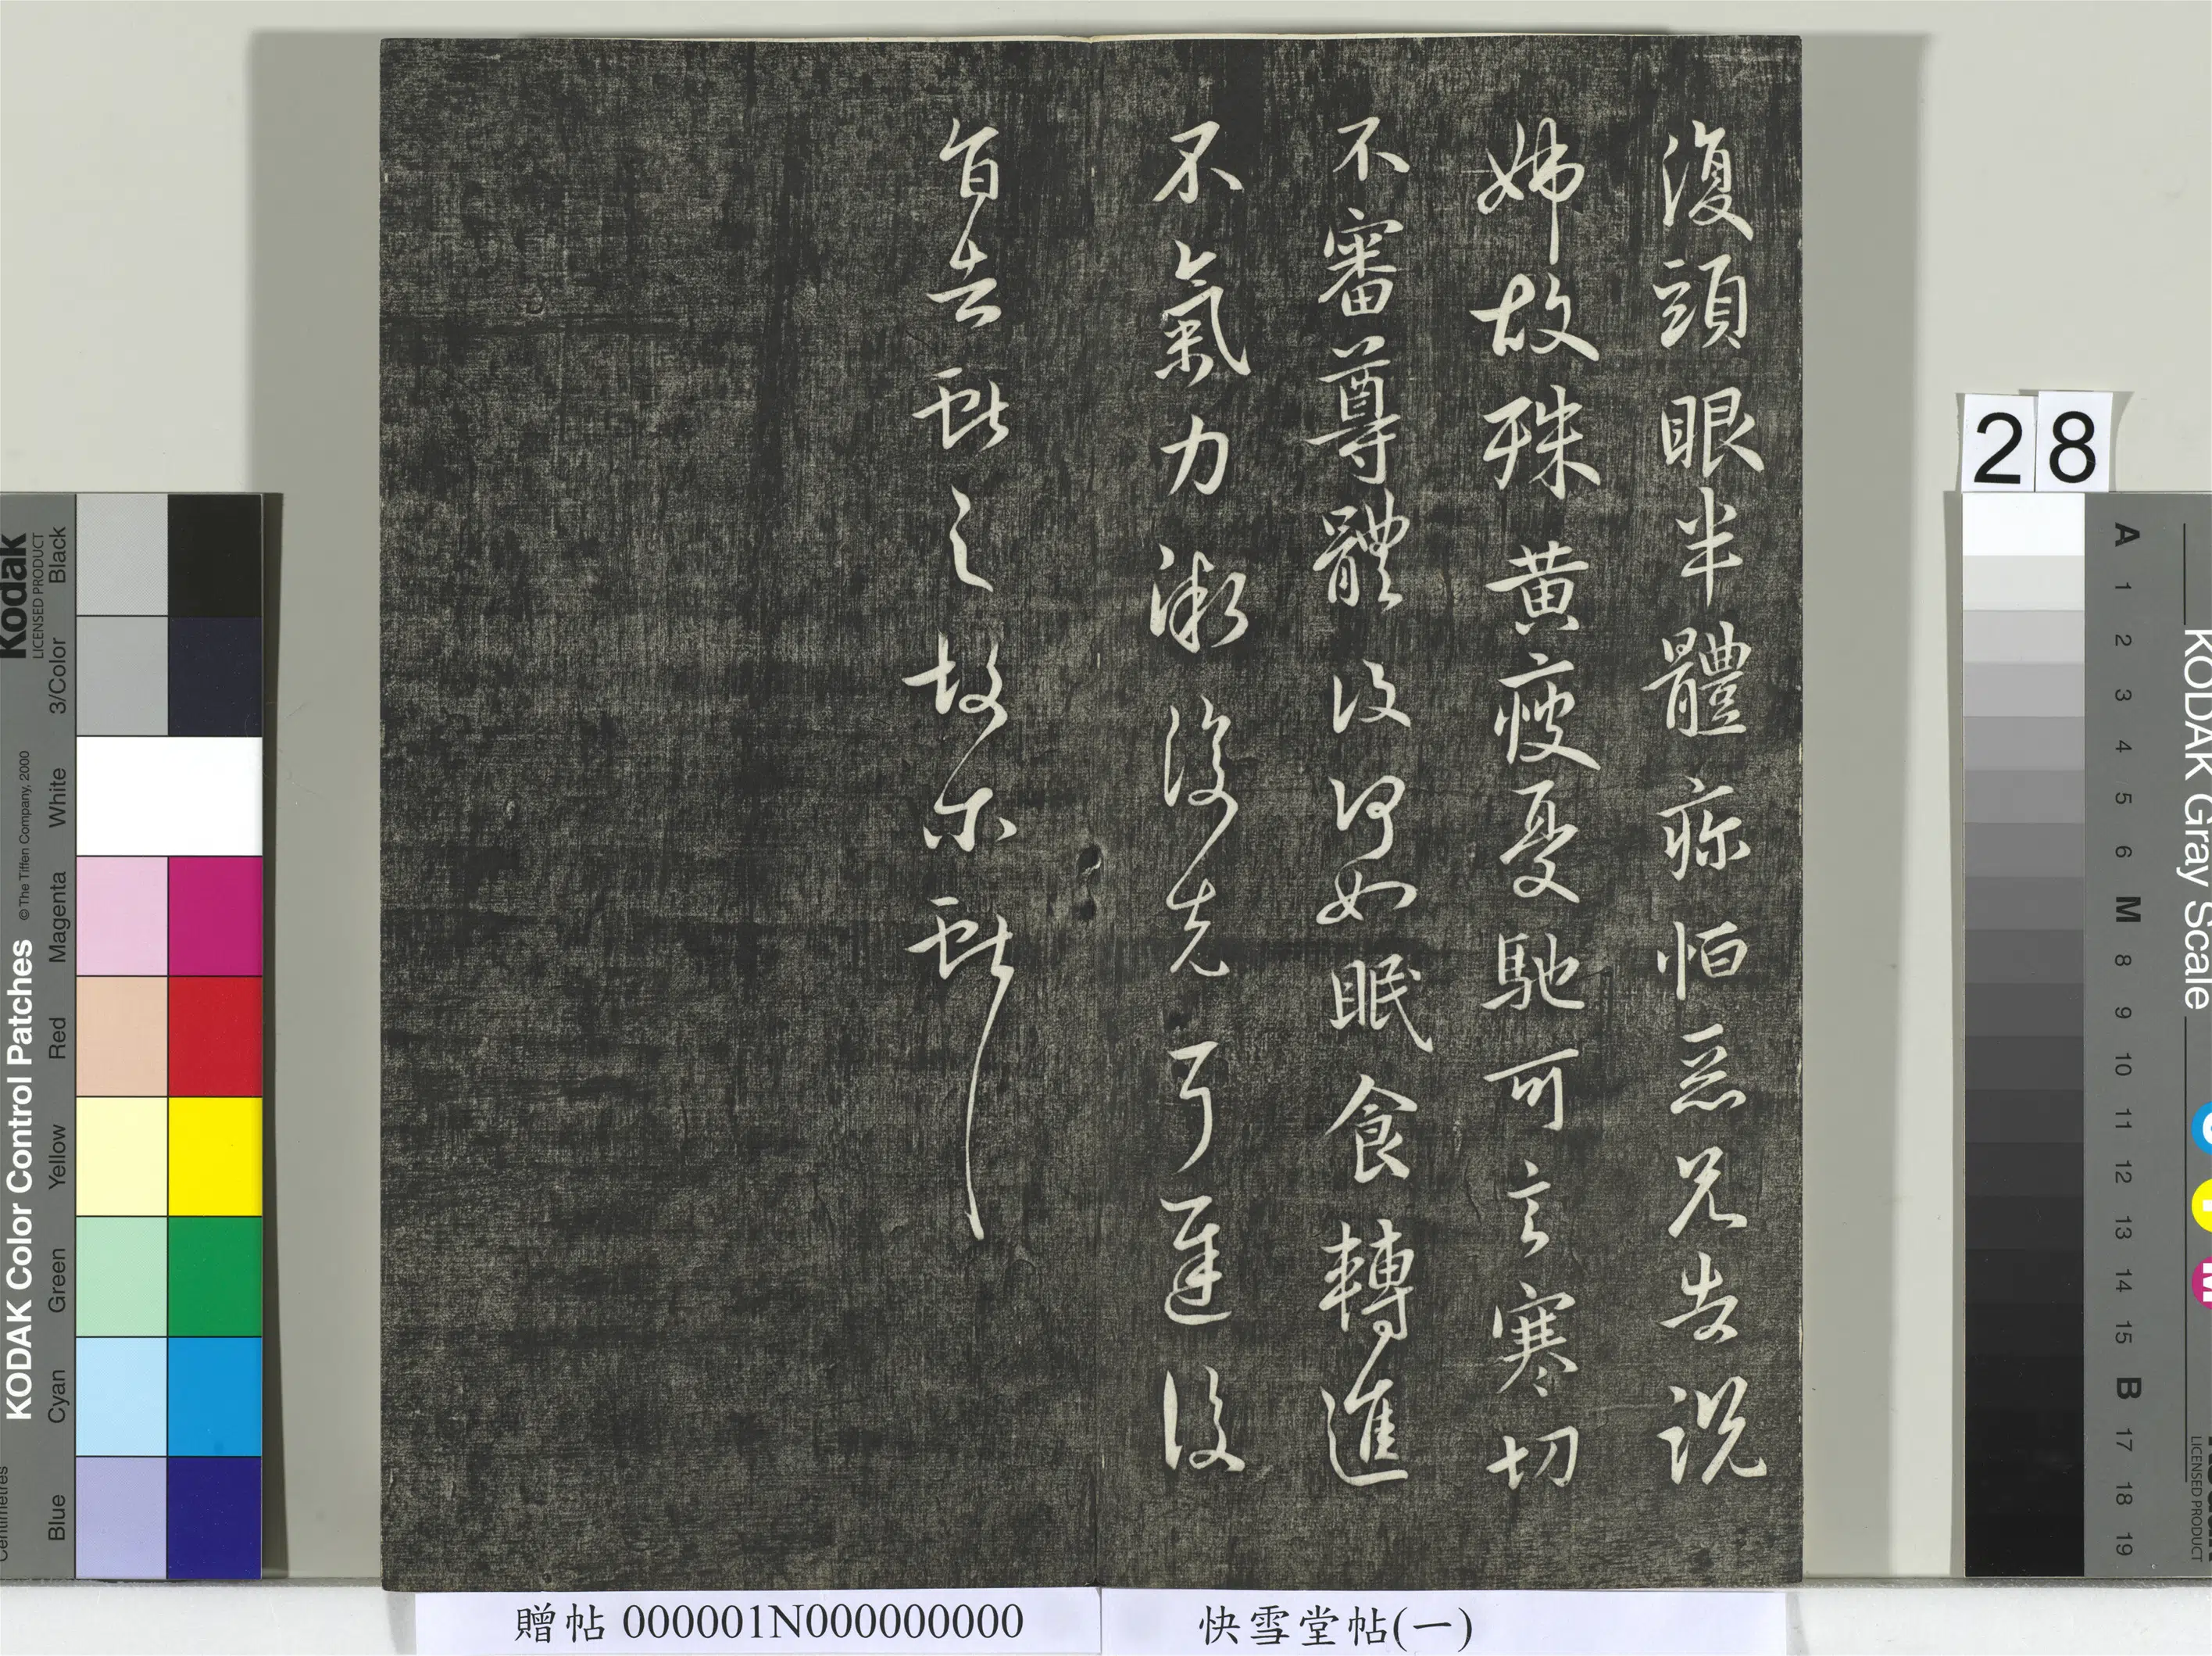 復頭眼半體疼恒惡兄告説
姊故殊黃瘦憂馳可言寒切
不審尊體復何如眠食轉進
不氣力漸復先
耳遲復
旨告
之故尓
28
Kodak
LICENSED PRODUCT
KODAK Color Control Patches
© The Tiffen Company, 2000
Black
3/Color
White
Magenta
Red
Yellow
Green
Cyan
Blue
Centimetres
KODAK Gray Scale
A 1 2 3 4 5 6 M 8 9 10 11 12 13 14 15 B 17 18 19
LICENSED PRODUCT
C
Y
M
贈帖 000001N000000000
快雪堂帖(一)